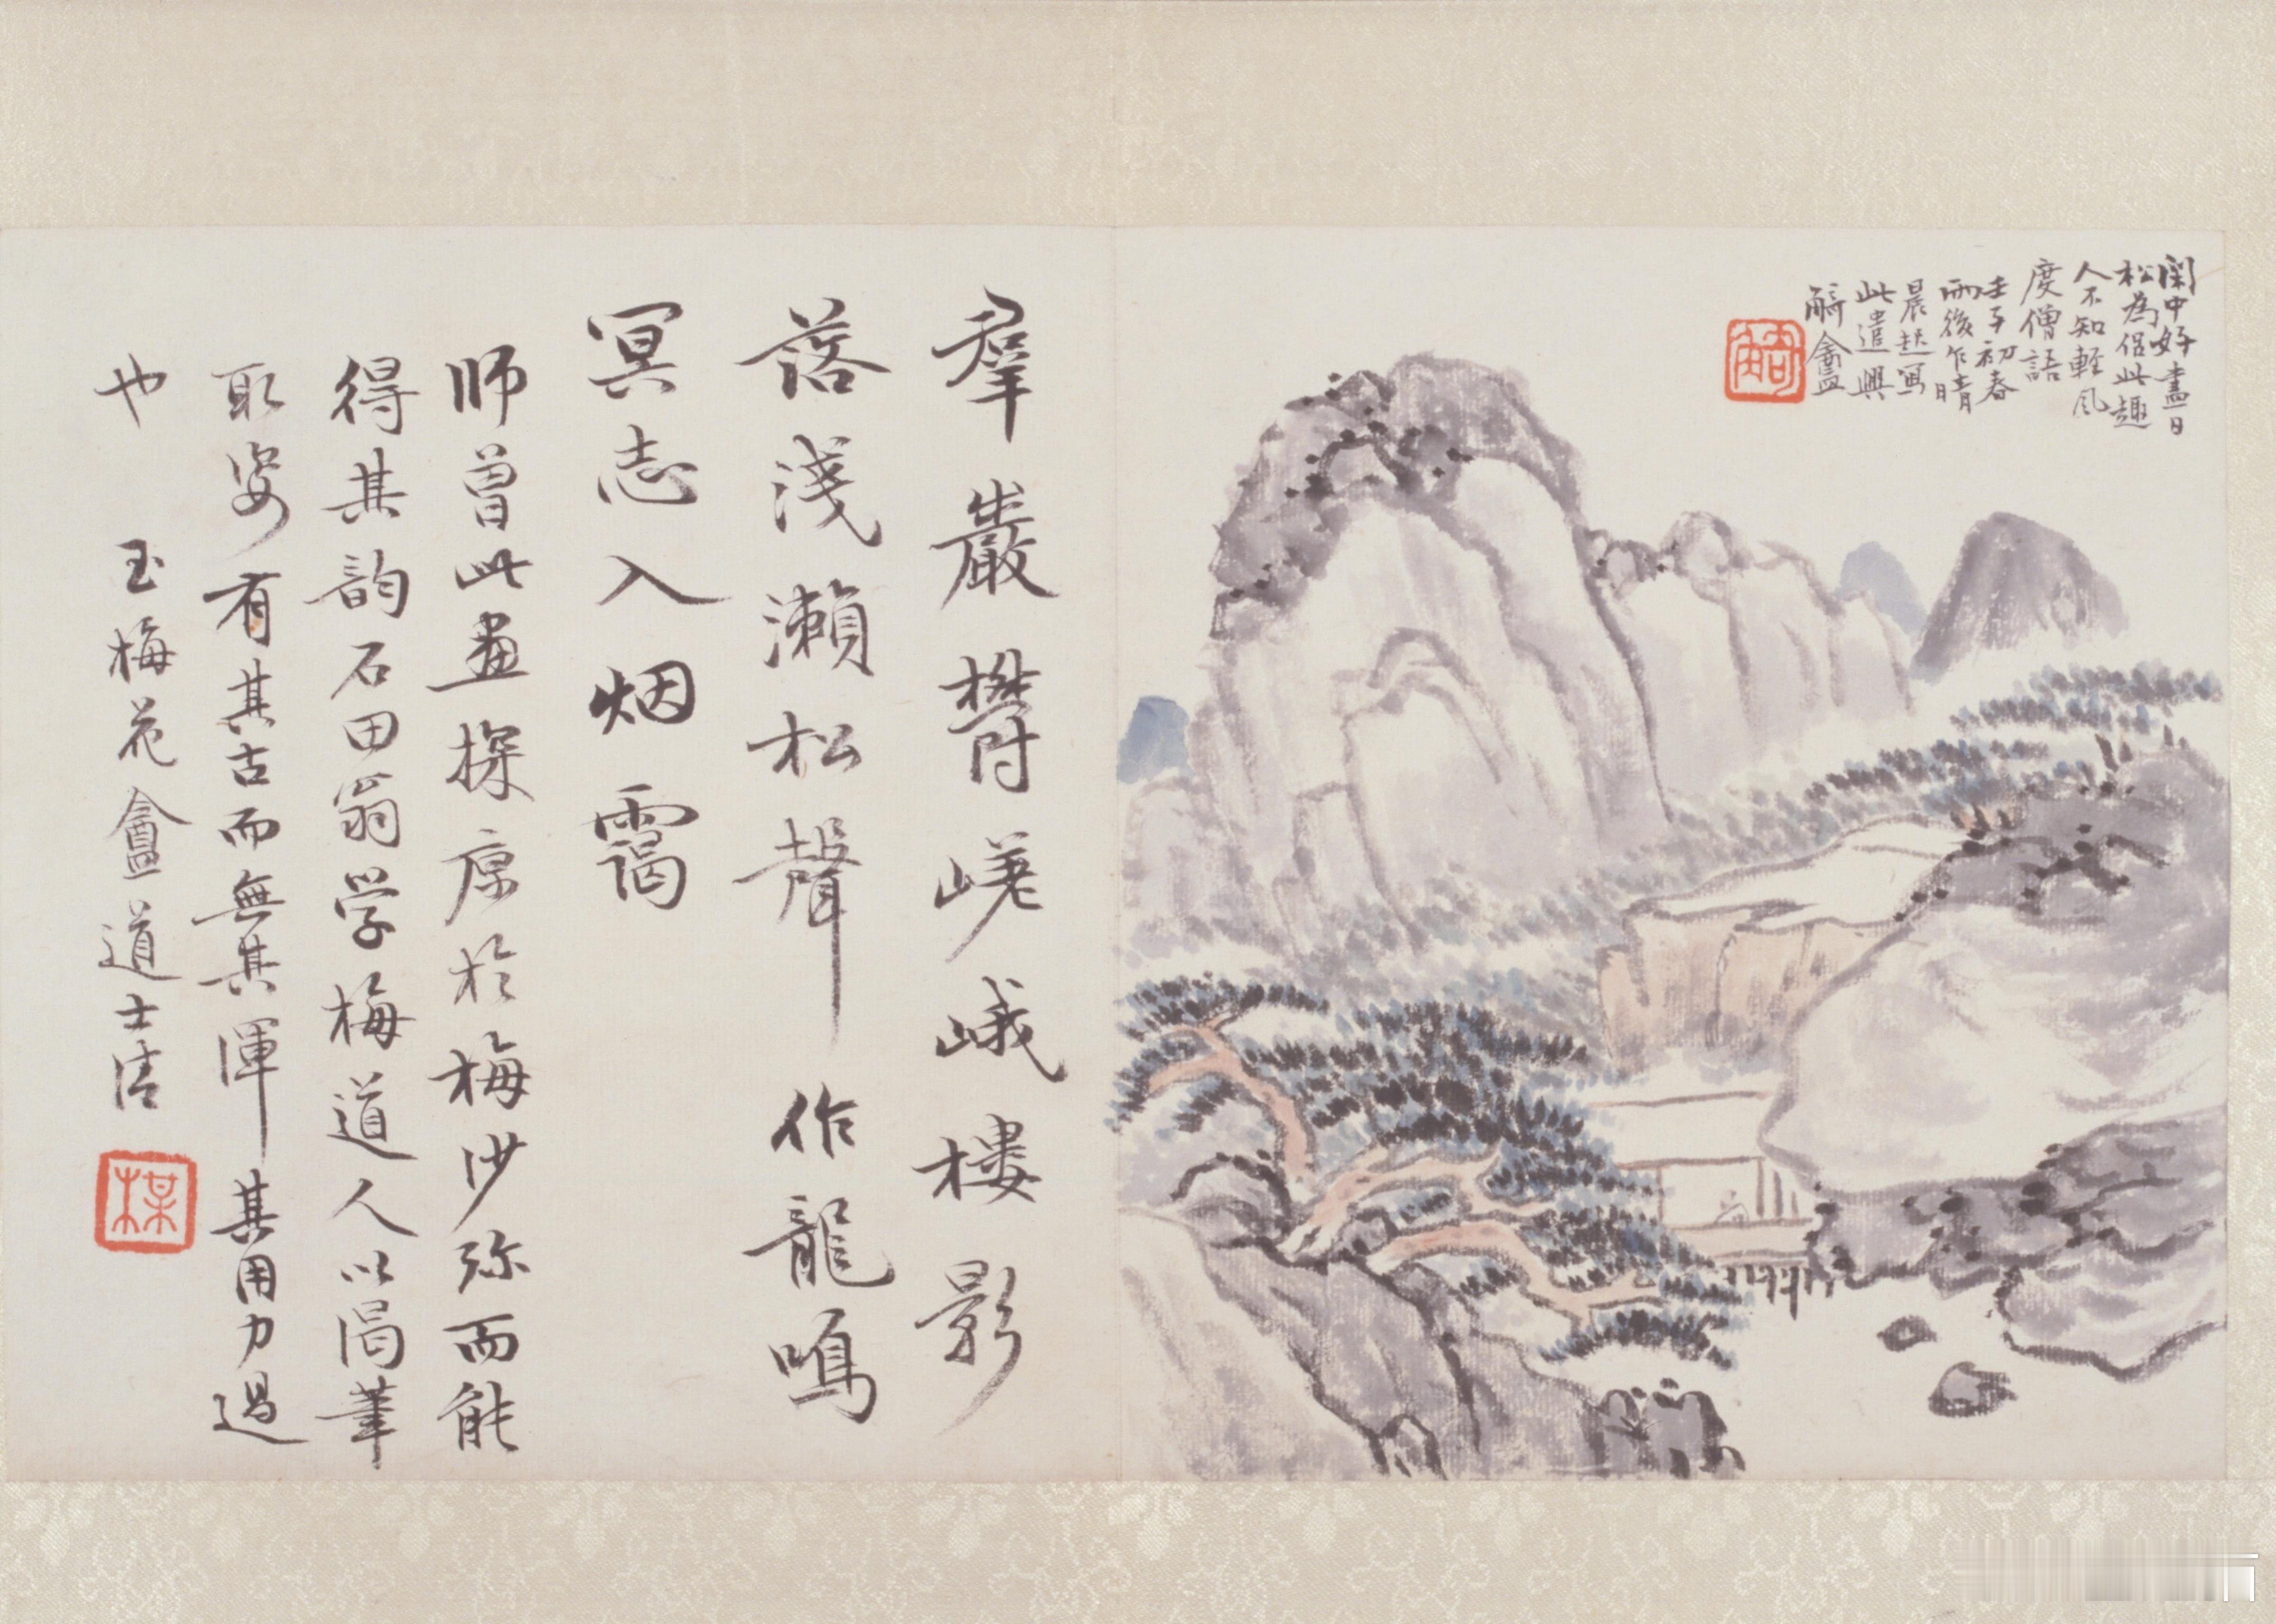 閑中好盡日
松為侶此趣
人不知輕風
度僧語
壬子初春
雨後乍晴
晨起寫
此遣興
觭盦
觭
羣巖欎嵯峨樓影
落淺瀨松聲作龍鳴
冥志入烟靄
师曾此畫探原於梅沙弥而能
得其韵石田翁学梅道人以渴筆
取姿有其古而無其渾其用力過
也
玉梅花盦道士清